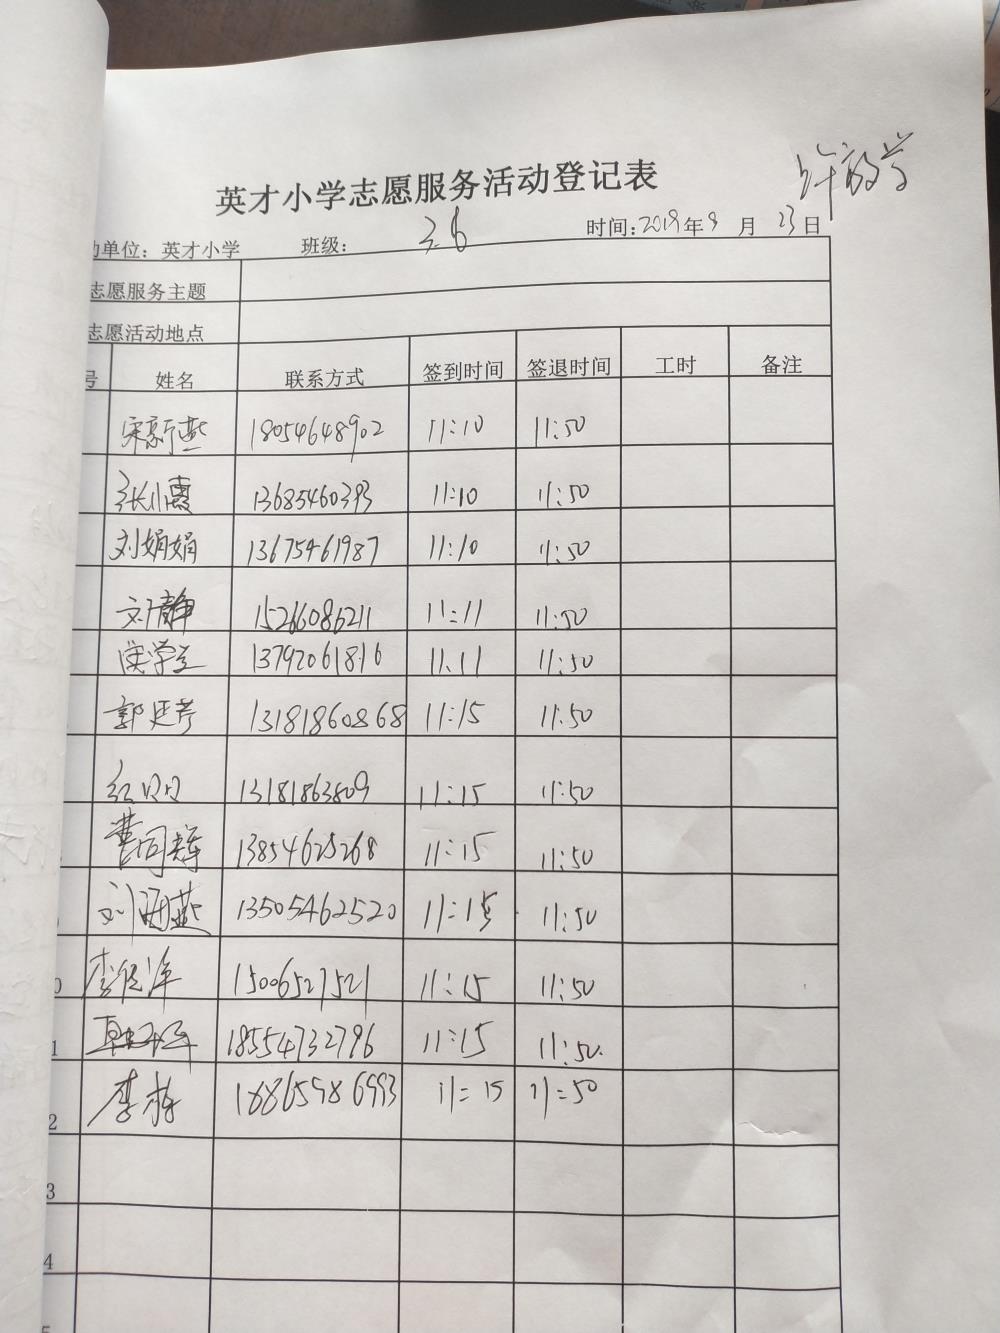 午放学
英才小学志愿服务活动登记表
动单位：英才小学 班级： 3.6 时间：2019年9月23日
志愿服务主题
志愿活动地点
号 姓名 联系方式 签到时间 签退时间 工时 备注
宋新燕 18054648902 11:10 11:50
张小霞 13685460393 11:10 11:50
刘娟娟 13675461987 11:10 11:50
刘静 15266086211 11:11 11:50
13792061816 11.11 11:50
郭廷芳 13181860868 11:15 11:50
13181863809 11:15 11:50
曹同辉 13854625268 11:15 11:50
刘海燕 13505462520 11:15 11:50
0 15006527521 11:15 11:50
1 18554732796 11:15 11:50
2 李栋 18865986993 11:15 11:50
3
4
5